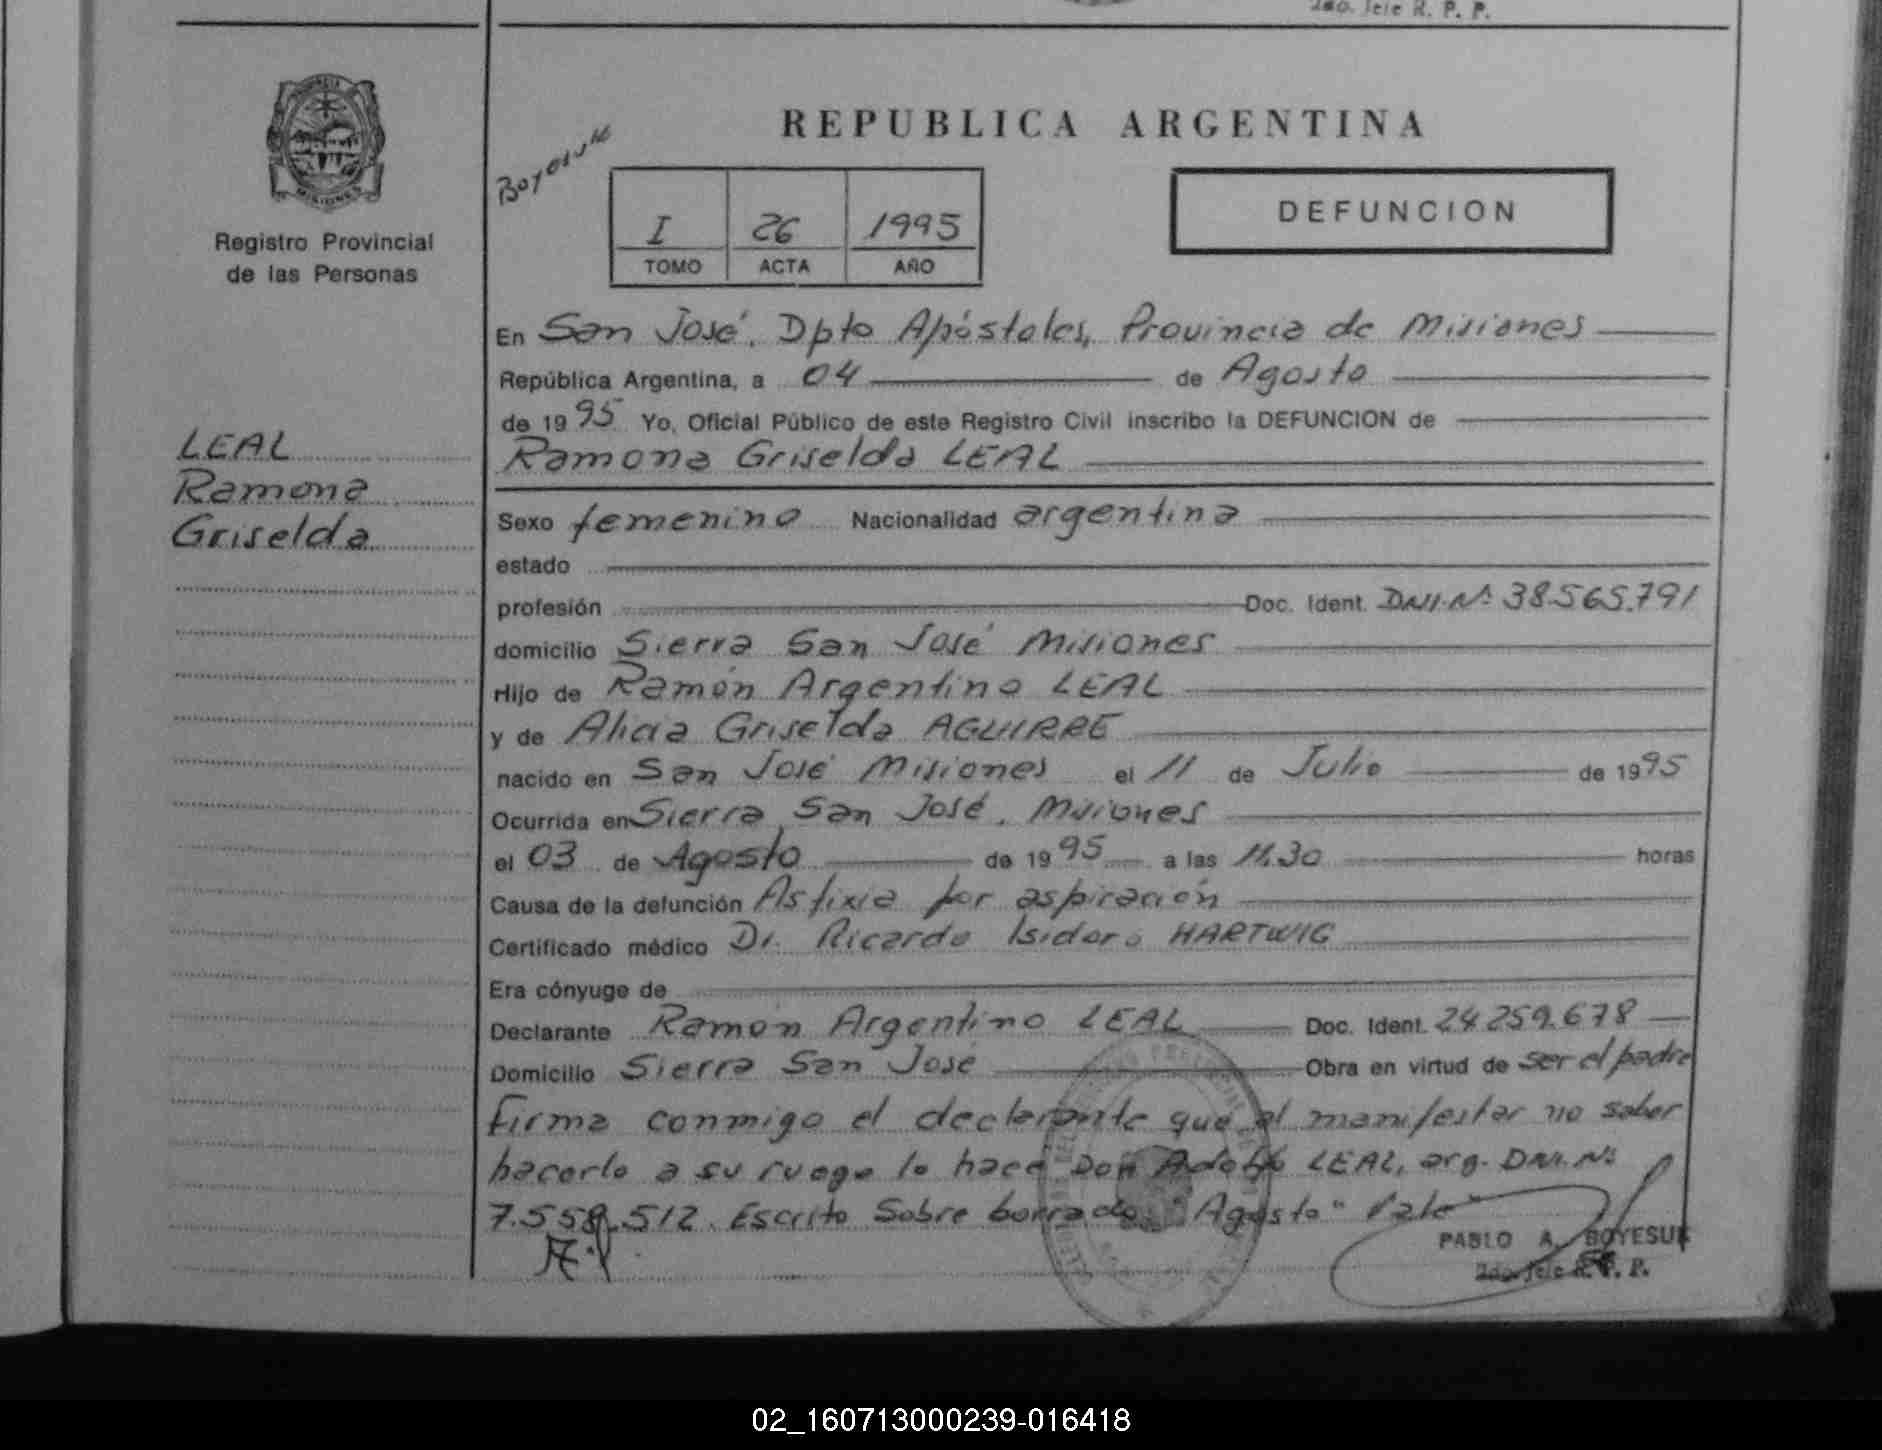 2do. Jefe R. P. P.
PROVINCIA
MISIONES
Registro Provincial
de las Personas
LEAL
Ramona
Griselda
REPUBLICA ARGENTINA
I 26 1995
TOMO ACTA AÑO
DEFUNCION
En San José, Dpto Apóstoles, Provincia de Misiones
República Argentina, a 04 de Agosto
de 1995 Yo, Oficial Público de este Registro Civil inscribo la DEFUNCION de
Ramona Griselda LEAL
Sexo femenino Nacionalidad argentina
estado
profesión Doc. Ident. DNI. Nº 38.565.791
domicilio Sierra San José Misiones
Hijo de Ramón Argentino LEAL
y de Alicia Griselda AGUIRRE
nacido en San José Misiones el 11 de Julio de 1995
Ocurrida en Sierra San José, Misiones
el 03 de Agosto de 1995 a las 11.30 horas
Causa de la defunción Asfixia por aspiración
Certificado médico Dr. Ricardo Isidoro HARTWIG
Era cónyuge de
Declarante Ramón Argentino LEAL Doc. Ident. 24.259.678
Domicilio Sierra San José Obra en virtud de ser el padre
Firma conmigo el declarante que al manifestar no saber
hacerlo a su ruego lo hace Don Adolfo LEAL, arg. DNI. Nº
7.558.512. Escrito Sobre borrado "Agosto" Vale"
PABLO A. BOYESUK
2do. Jefe R. P. P.
02_160713000239-016418